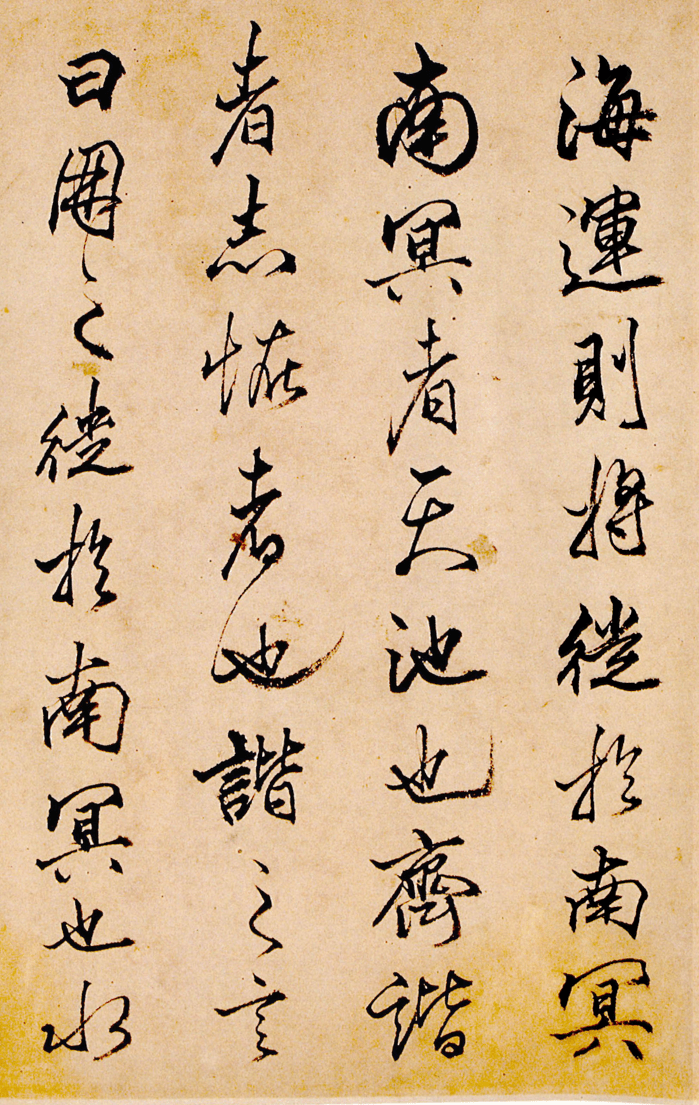 海運則將徙於南冥
南冥者天池也齊諧
者志恠者也諧之言
曰鵬之徙於南冥也水